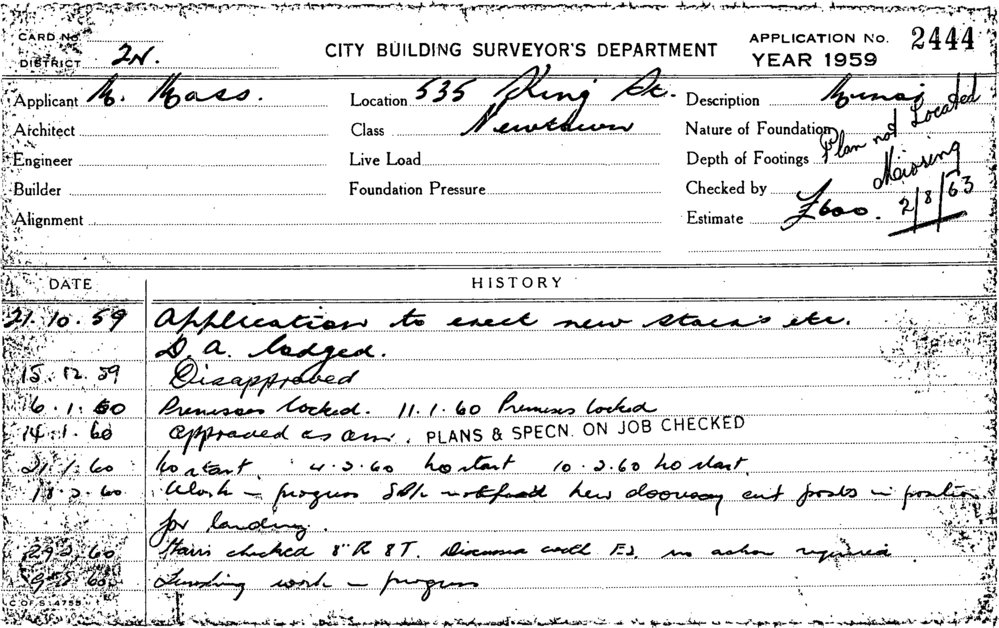 CARD No.
DISTRICT 2N.
CITY BUILDING SURVEYOR'S DEPARTMENT
APPLICATION No. 2444
YEAR 1959
Applicant M. Mass.
Location 535 King St.
Newtown
Description Minor
Architect
Class
Nature of Foundation
Plan not Located
Engineer
Live Load
Depth of Footings
Missing
Builder
Foundation Pressure
Checked by
2/8/63
Alignment
Estimate £600.
DATE HISTORY
21.10.59 Application to erect new stairs etc.
D.A. lodged.
15.12.59 Disapproved
6.1.60 Premises locked. 11.1.60 Premises locked
14.1.60 approved as am. PLANS & SPECN. ON JOB CHECKED
21.1.60 no start 4.2.60 no start 10.2.60 no start
18.2.60 Work in progress new doorway cut posts in position
for landing.
29.2.60 Stairs checked 8" R 8 T. Discussed with no action required
60 Finishing work in progress
C OF S 14755